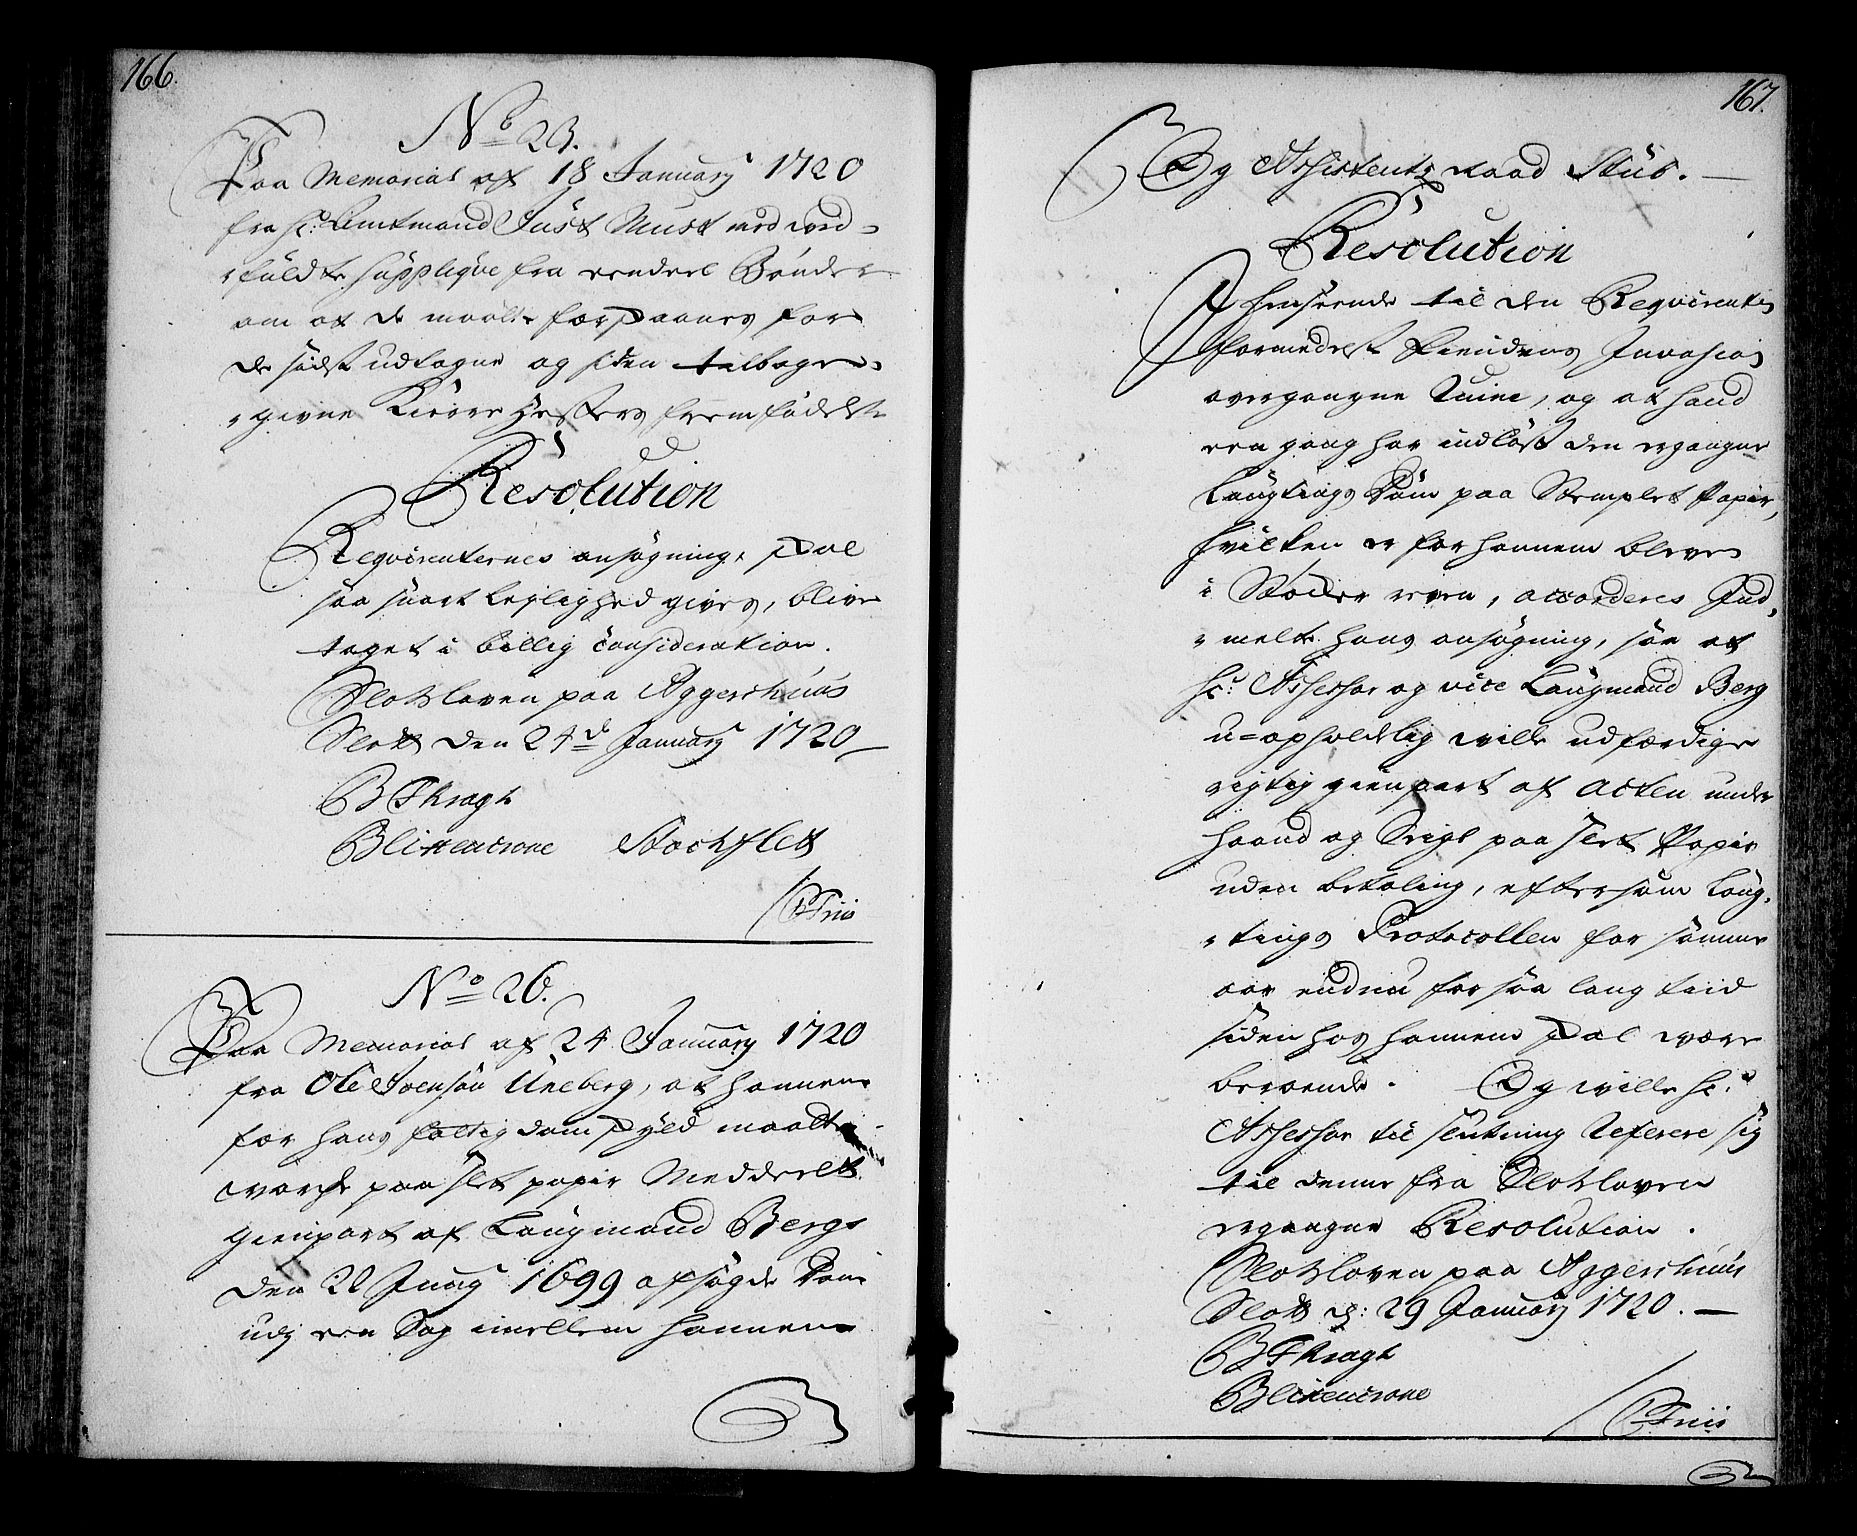 166.
No 23.
Paa Memorial af 18 January 1720
fra Hr: Amtmand Just Must med ved-
-föied Supplique fra eendeel Bönder
om at de maatte forskaanes for
de sidst udtagne og siden tilbage-
-givne Kiörre Hesters fremfödelse
Resolution
Reqvirenternes ansøgning, skal
saa snart Lejlighed gives, blive
taget i billig Consideration.
Slotsloven paa Aggershuus
Slott den 24de January 1720
B F Kragh
Blixencrone Stochflett
/ C Friis
No 26.
Paa Memorial af 24 January 1720
fra Ole Svensön Uneberg, at hannem
for hans fattigdom skyld maatte
vorde paa slet papir Meddeelt
gienpart af Laugmand Bergs
den 22 Juny 1699 afsagde Dom
udj een Sag imellem hannem
167.
Og Assistentzraad Stub.
Resolution
I henseende til den Reqvirentis
formedelst Fiendens Invasion
overgangne Ruine, og at hand
een gang har indlöst den ergangne
Laugtings Dom paa Stemplet Papir,
hvilken er for hannem bleven
i Stöcker reven, accorderes Ind-
-melte hans ansøgning, saa at
Hr: Assessor og vice Laugmand Berg
u-opholdelig wille udfærdige
rigtig gienpart af acten under
haand og Seigl paa slet Papir
uden betaling, eftersom Laug-
-tings Protocollen for samme
aar endnu for saa lang tiid
siden hos hannem skal være
beroende. Og wille Hr:
Assessor til slutning Referere sig
til denne fra Slotsloven
ergangne Resolution.
Slotsloven paa Aggershuus
Slott d: 29 January 1720.
B F Kragh
Blixencrone
/ C Friis